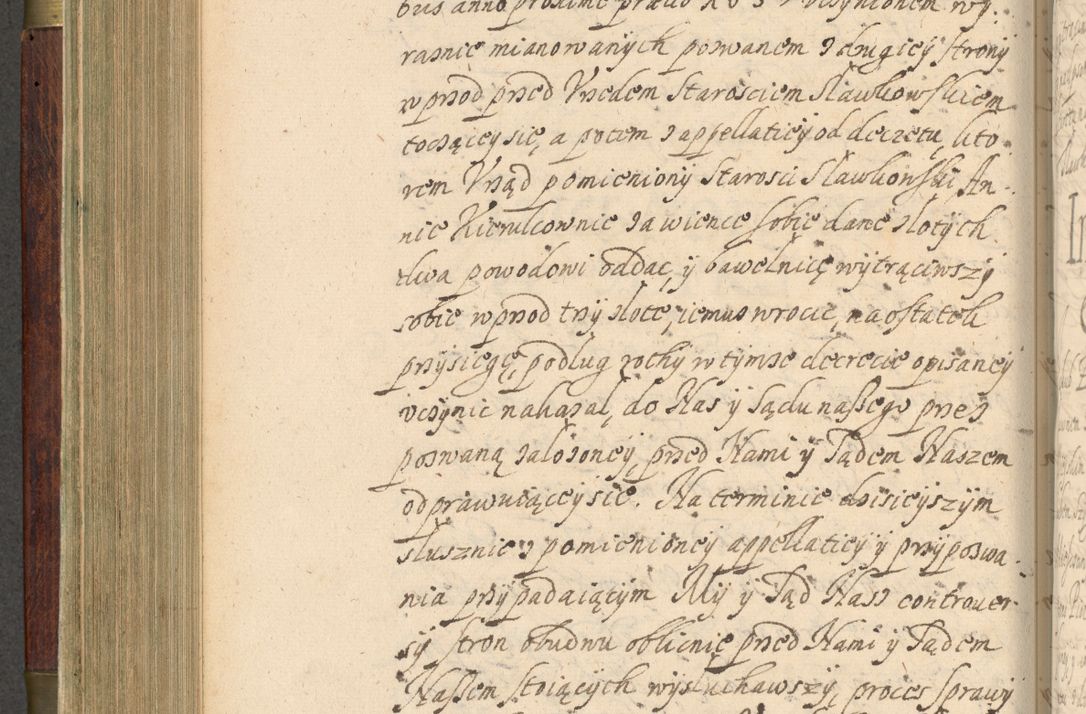 raznie mianowanych pozwanem z drugiey strony
w przod przed Vrzedem Starosciem Slawkowskiem
toczącey się, a potem z appellatiey od decretu, kto
rem Vrząd pomieniony Starosci Slawkowski, An-
nie Kierulcownie za wience sobie dane zlotych
dwa powodowi oddac, y bawelnicę wytrąciwszy
sobie wprzod trzy zlote, iemu wrocic, na ostatek
przysięgę, podlug rothy w tymze decrecie opisaney
vczynic nakazal, do Nas y Sądu naszego przez
pozwaną zalozoney, przed Nami y Sądem Naszem
odprawuiącey się. Na terminie dzisieyszym
slusznie z pomienioney appellatiey y przypozwa-
nia przypadaiącym My y Sąd Nasz controuer-
sy stron obudwu oblicznie przed Nami y Sądem
Naszem stoiących wysluchawszy, proces sprawy